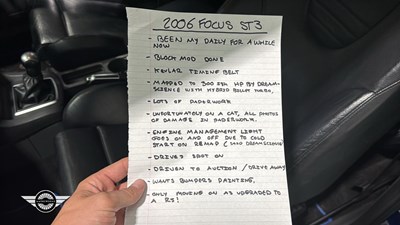 2006 FOCUS ST3
- BEEN MY DAILY FOR A WHILE
NOW
- BLOCK MOD DONE
- KEVLAR TIMING BELT
- MAPPED TO 300 HP BY DREAM-
SCIENCE WITH HYBRID TURBO,
- LOTS OF PAPERWORK
- UNFORTUNATELY A CAT, ALL PHOTOS
OF DAMAGE IN PAPERWORK.
- ENGINE MANAGEMENT LIGHT
GOES ON AND OFF DUE TO COLD
START ON REMAP ( DREAMSCIENCE)
- DRIVES SPOT ON
- DRIVEN TO AUCTION / DRIVE AWAY
- WANTS BUMPERS PAINTING,
- ONLY MOVING ON AS UPGRADED TO
A RS!